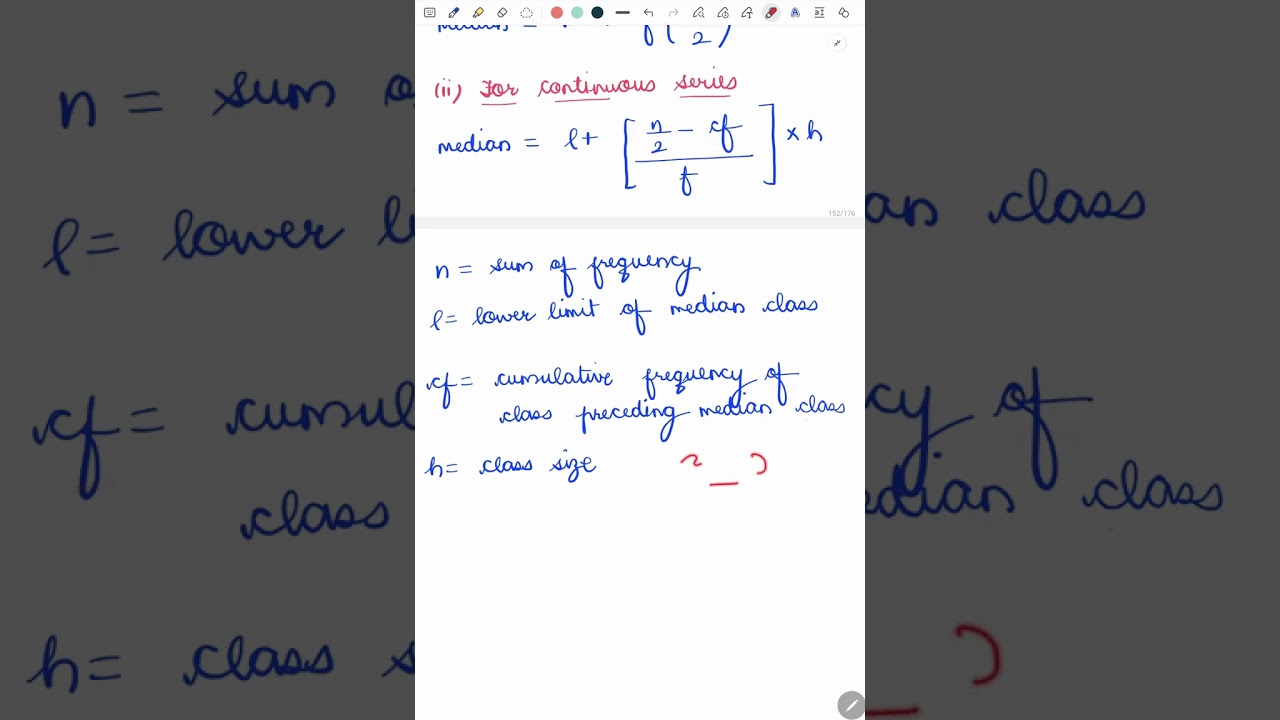 median =
(ii) For continuous series
median = l + [ (n/2 - cf) / f ] × h
152/176
n = sum of frequency
l = lower limit of median class
cf = cumulative frequency of
class preceding median class
h = class size